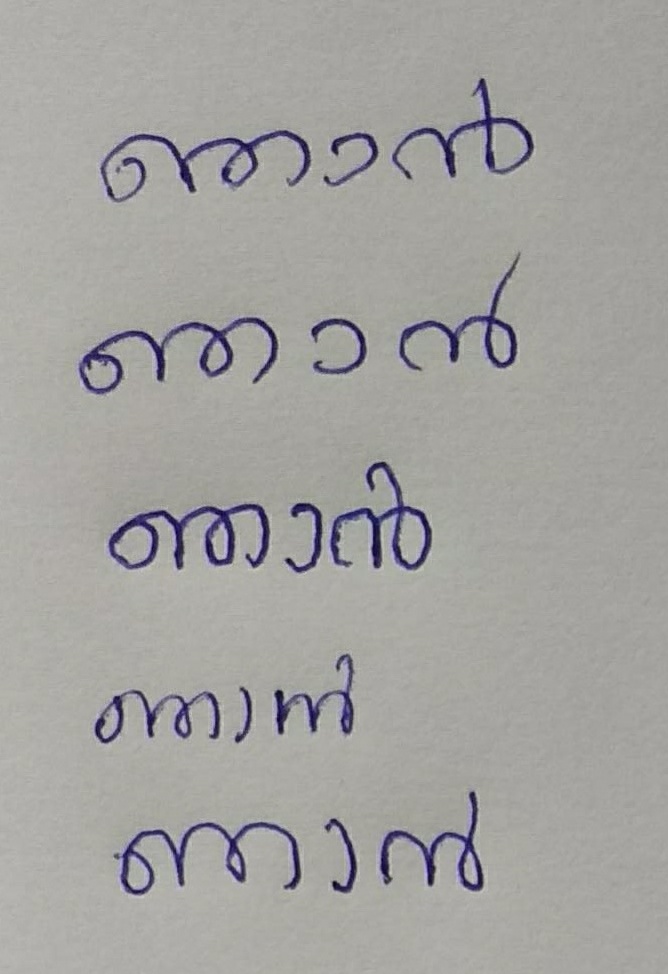 ഞാൻ
ഞാൻ
ഞാൻ
ഞാൻ
ഞാൻ